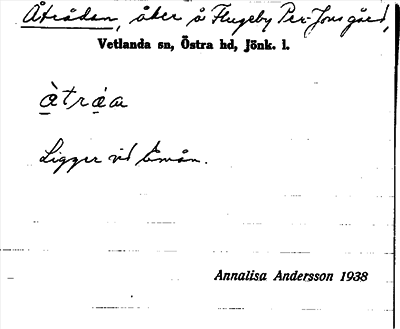 Åtrådan, åker å Flugeby Per-Jons gård,
Vetlanda sn, Östra hd, Jönk. l.
àtráa
Ligger vid Emån.
Annalisa Andersson 1938